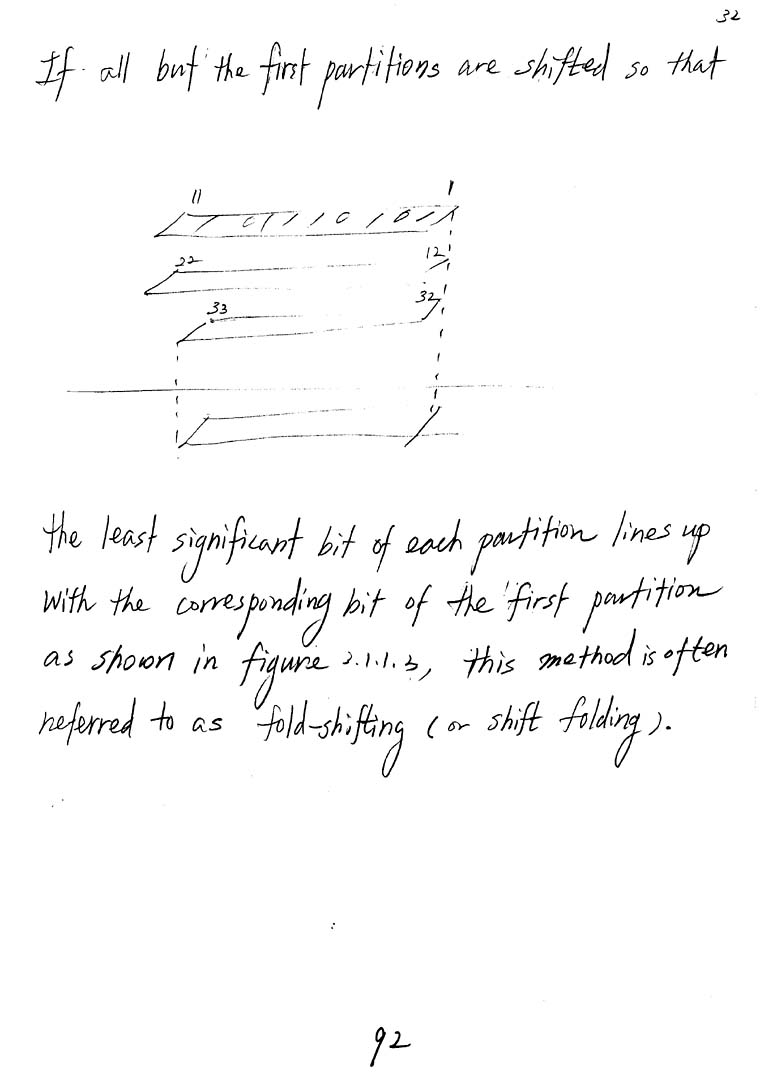 32
If all but the first partitions are shifted so that
11 1
1 1 0 1 1 1 0 1 0 1 1
22 12
33 32
the least significant bit of each partition lines up
with the corresponding bit of the first partition
as shown in figure 2.1.1.3, this method is often
referred to as fold-shifting (or shift folding).
92